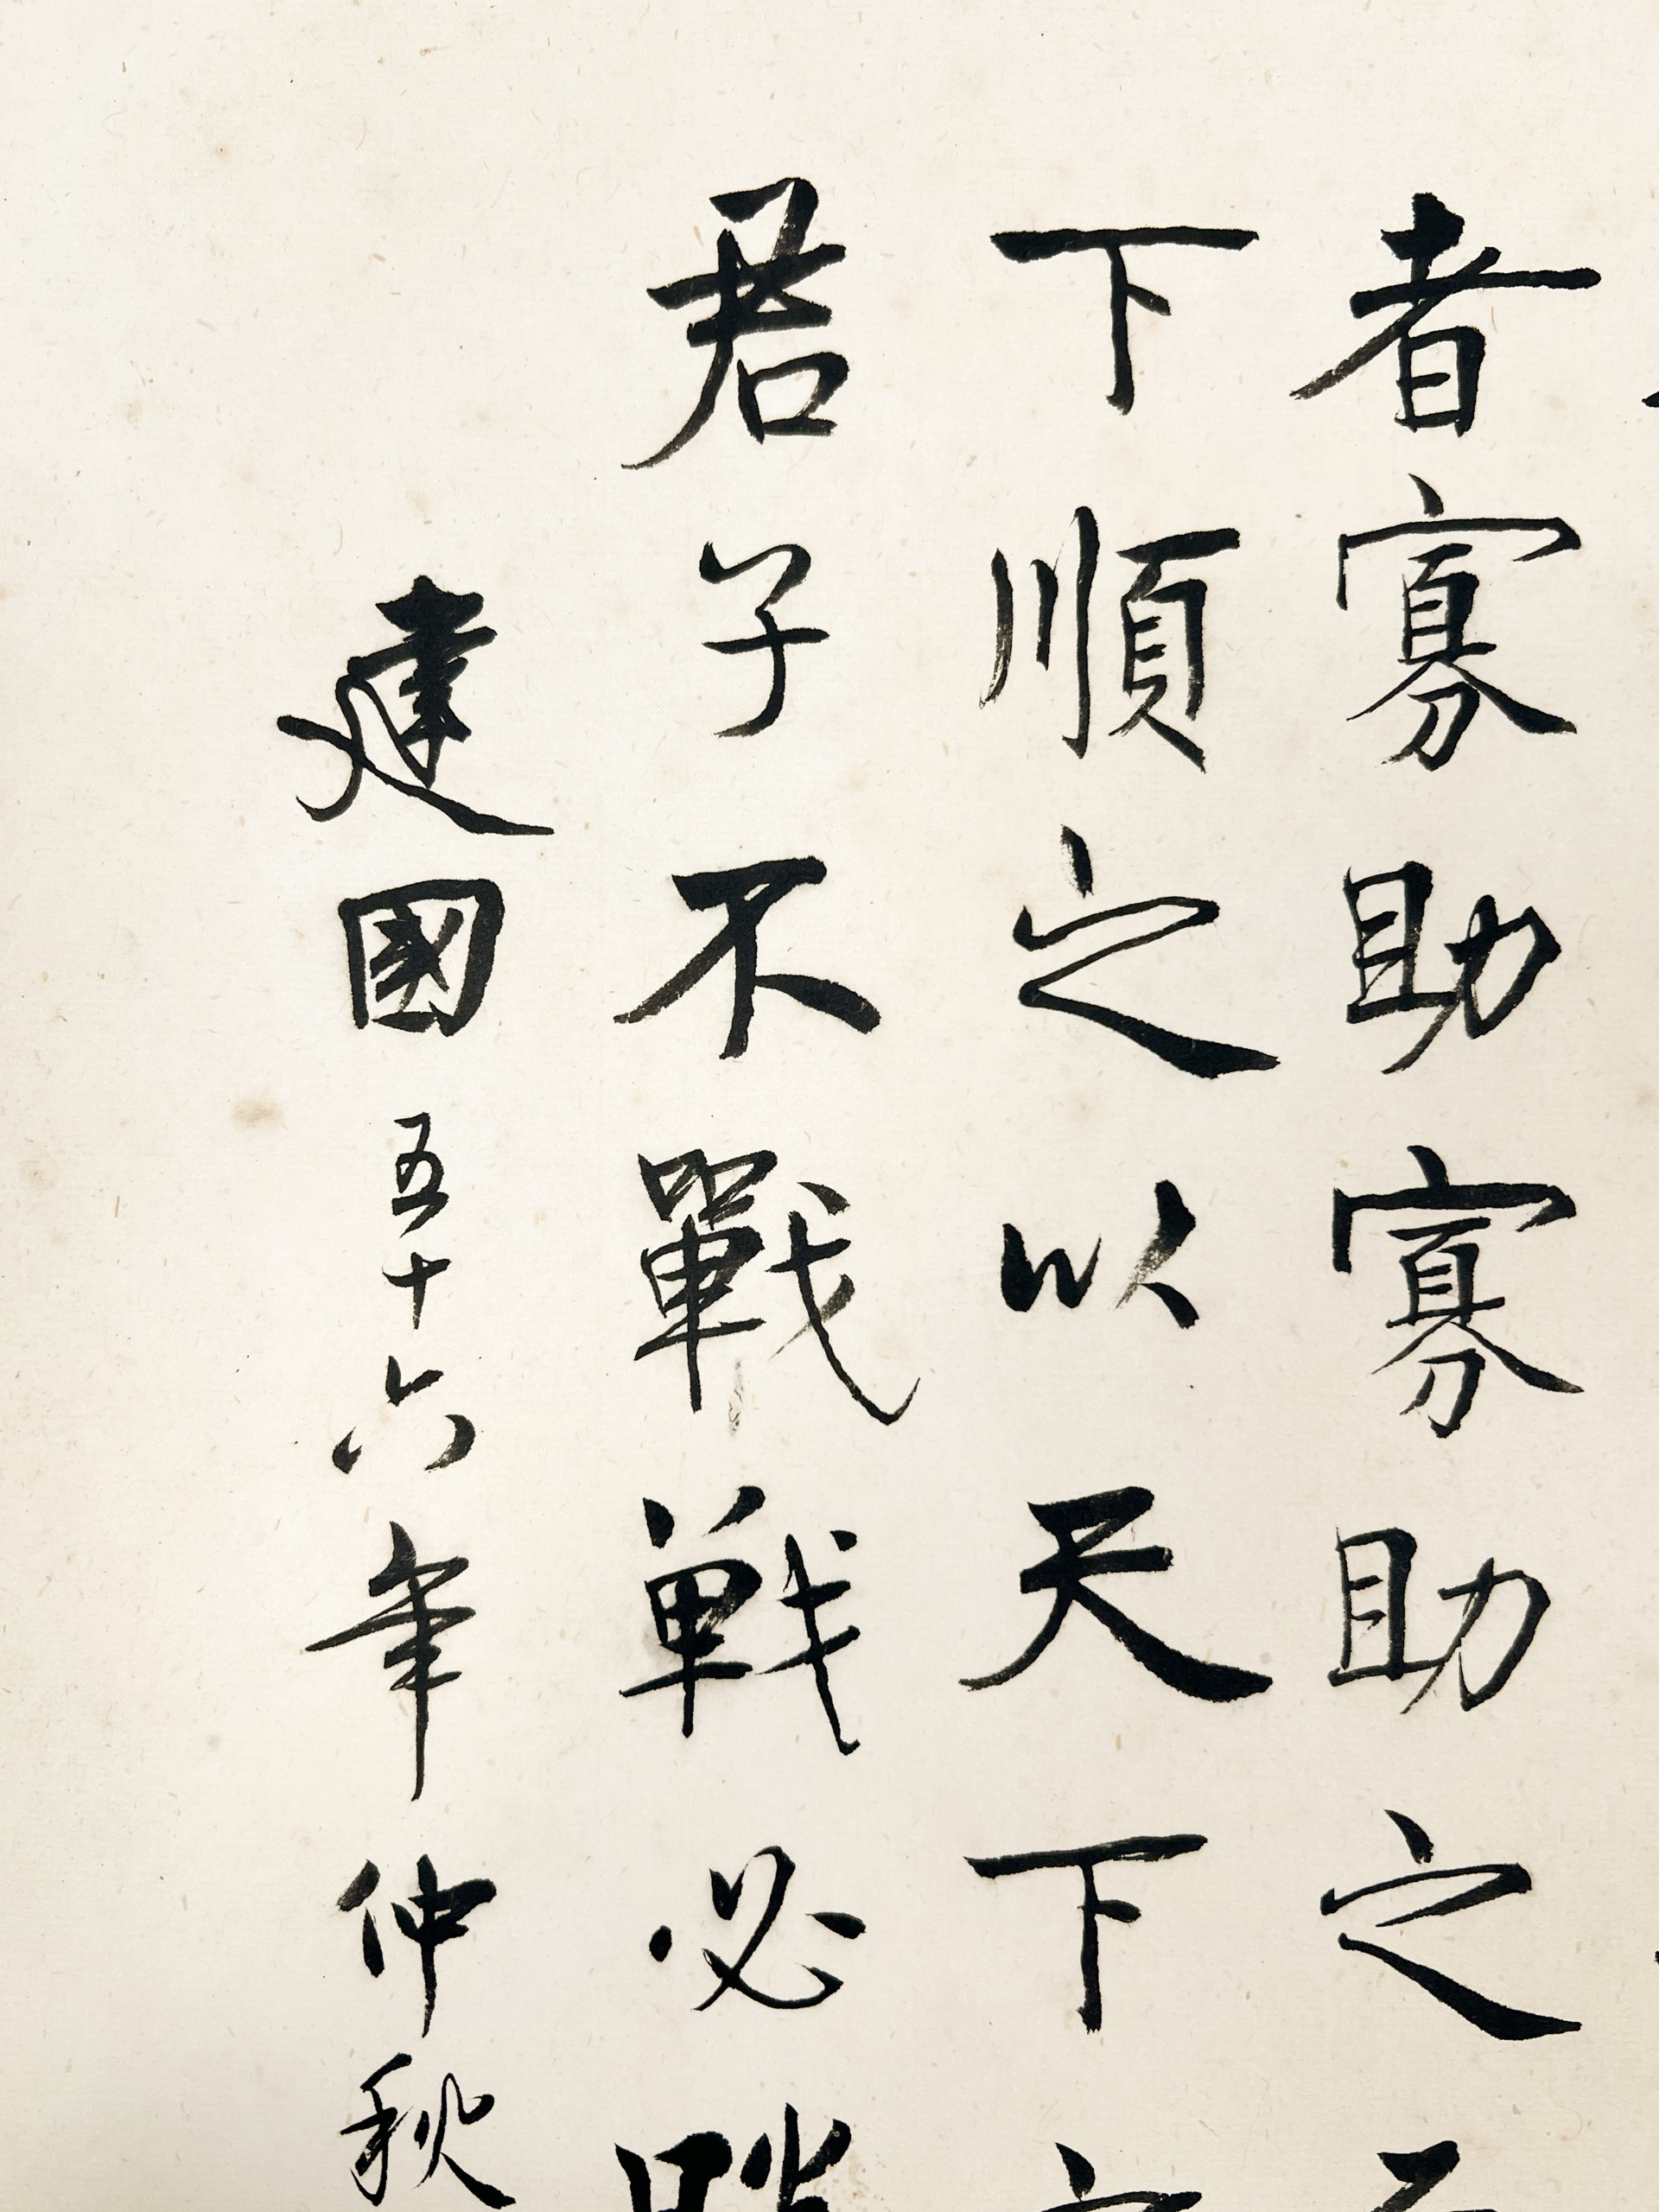 者寡助寡助之
下順之以天下
君子不戰戰必
建國五十六年仲秋